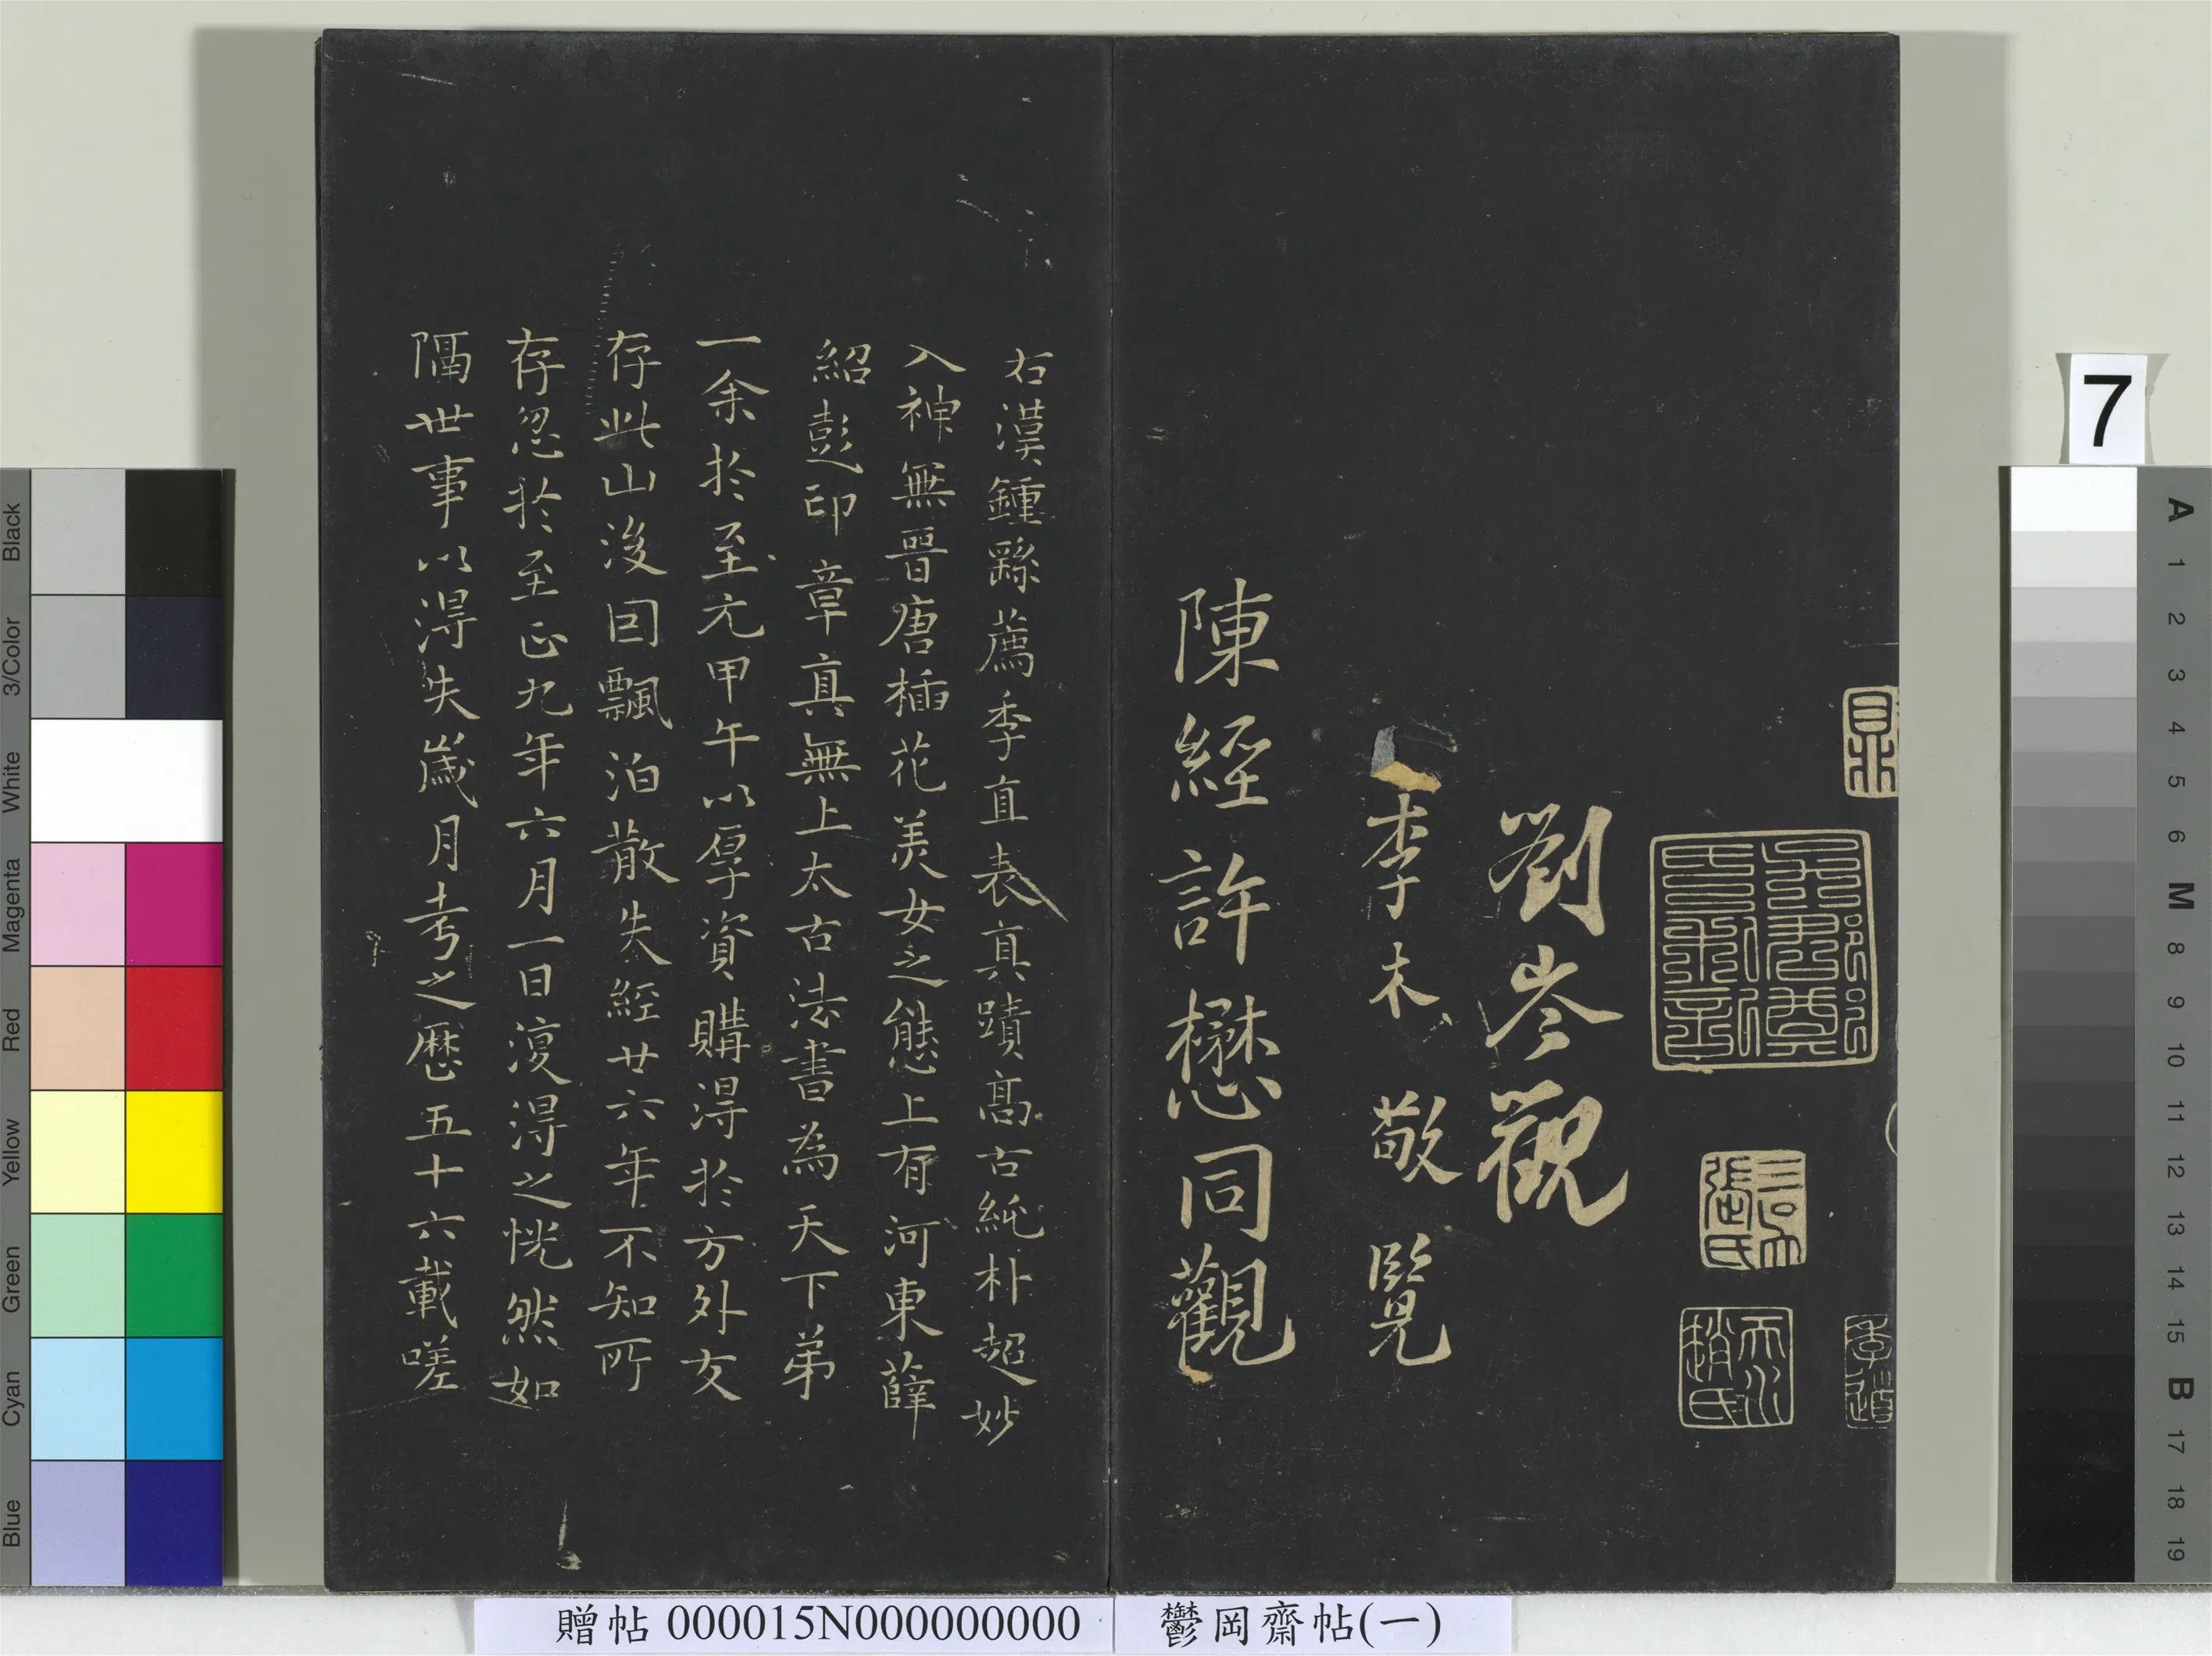 劉岑觀
李木敬覽
陳經許懋同觀
右漢鍾繇薦季直表真蹟髙古純朴超妙
入神無晉唐插花美女之態上有河東薛
紹彭印章真無上太古法書為天下弟
一余於至元甲午以厚資購得於方外友
存此山後因飄泊散失經廿六年不知所
存忽於至正九年六月一日復得之恍然如
隔世事以得失歲月考之歷五十六載嗟
天水趙氏
7
贈帖 000015N000000000
鬱岡齋帖(一)
Black
3/Color
White
Magenta
Red
Yellow
Green
Cyan
Blue
A
1
2
3
4
5
6
M
8
9
10
11
12
13
14
15
B
17
18
19